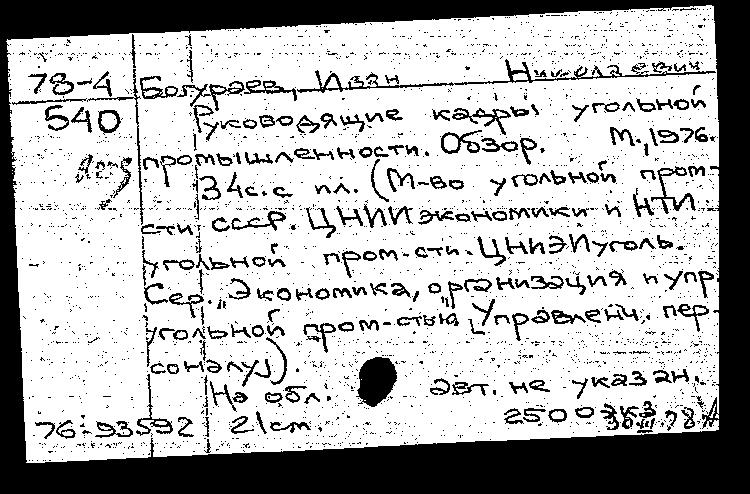 78-4 Богураев, Иван Николаевич
540 Руководящие кадры угольной
промышленности. Обзор. М., 1976.
34с. с пл. (М-во угольной пром-
сти СССР. ЦНИИ экономики и НТИ
угольной пром-сти. ЦНИЭИуголь.
Сер. „Экономика, организация и упр.
угольной пром-стью" [Управленч. пер-
соналу]).
На обл. авт. не указан.
76-93592 21см. 2500экз
30 III 78